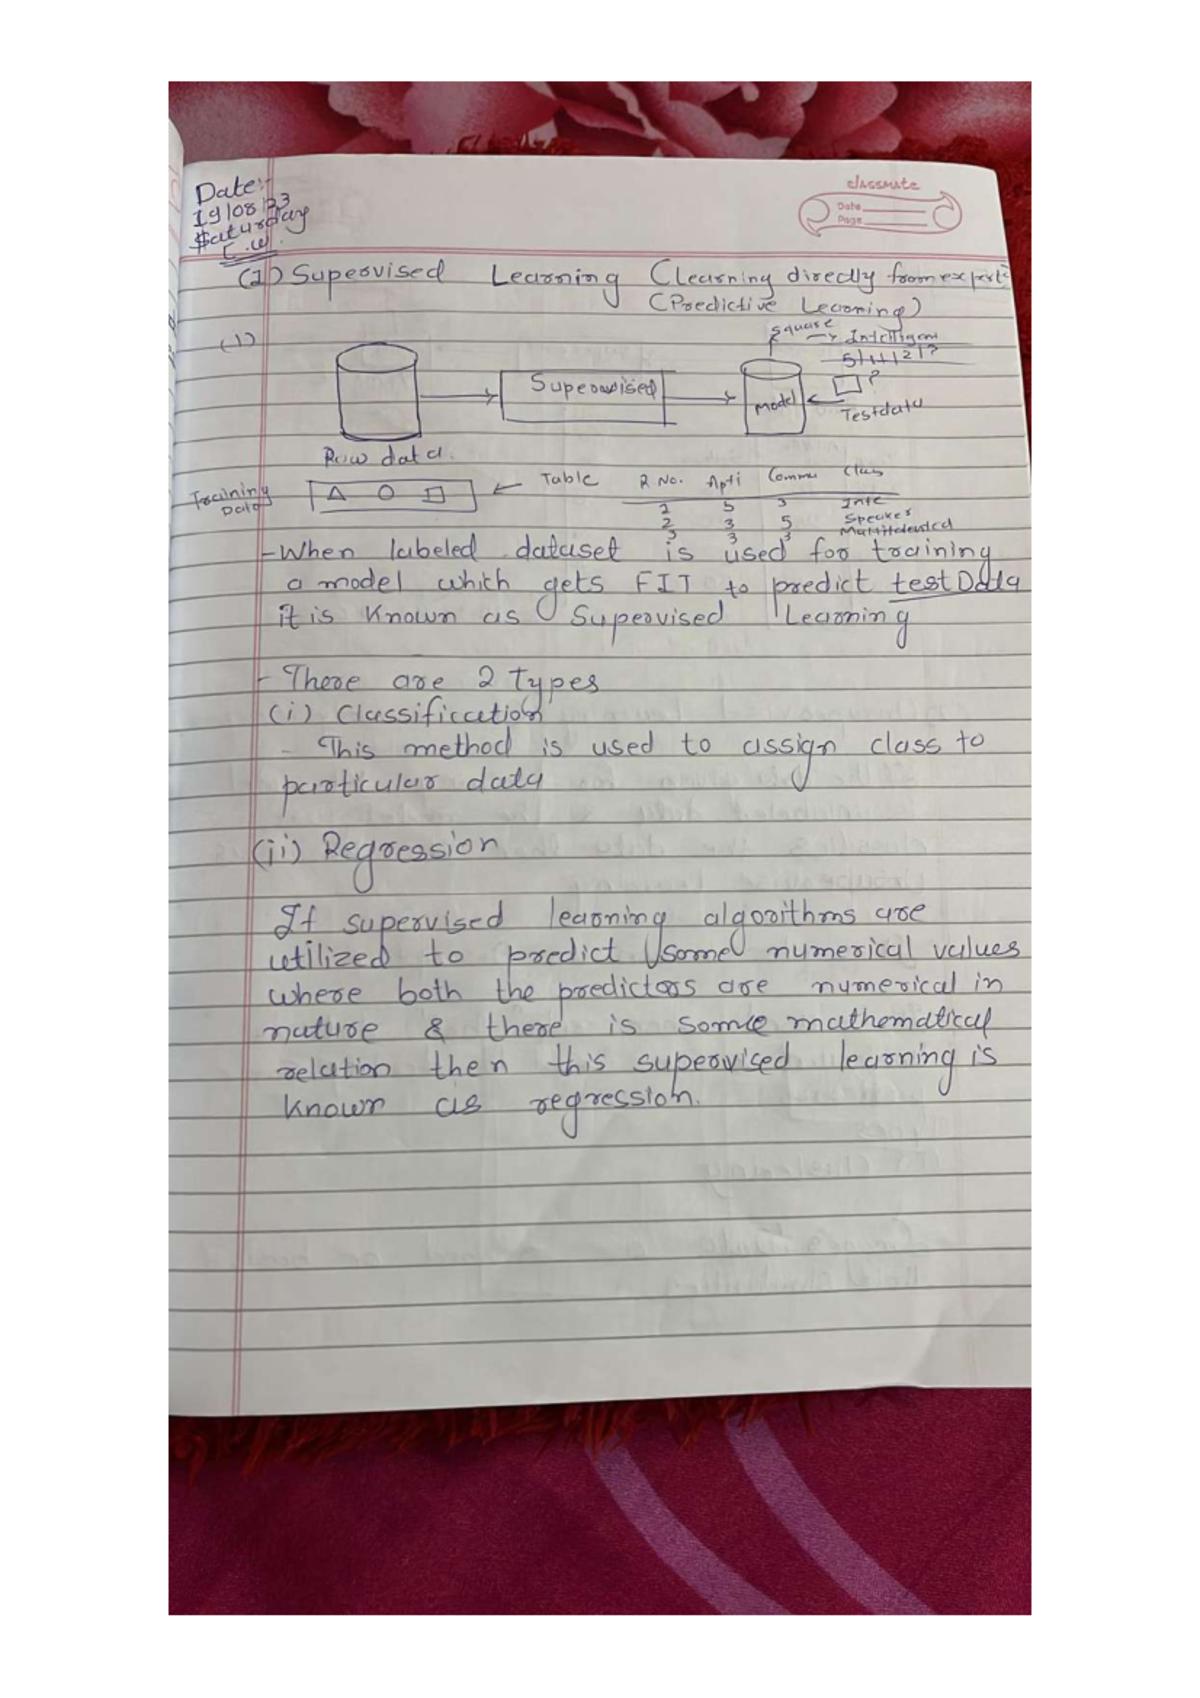 Date:-
19/08/23
Saturday
C.W.
classmate
Date
Page
(1) Supervised Learning (learning directly from expert
(Predictive Learning)
(1)
square
→ Intelligent
5/4/2/?
Supervised
Model
?
Testdata
Raw data.
Training Data
Table
R No. Apti Commu Class
1 5 3 Inte
2 3 5 Speaker
3 3 3 Multitalented
- When labeled dataset is used for training
a model which gets FIT to predict test Data
it is known as Supervised Learning
- There are 2 Types
(i) Classification
- This method is used to assign class to
particular data
(ii) Regression
If supervised learning algorithms are
utilized to predict some numerical values
where both the predictors are numerical in
nature & there is some mathematical
relation then this supervised learning is
known as regression.